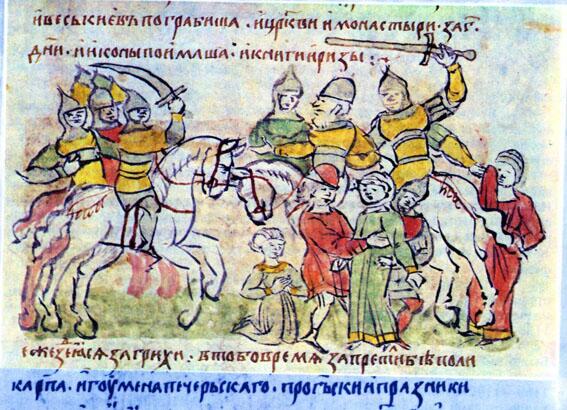 и весь киевъ пограбиша · и цркви и монастыри · за г҃
дни · и иконы поимаша · и книги и ризы :
за грихи · в то бо время запретилъ бѣ поли
карпа · игоумена печерьскаго · про гьскии празники